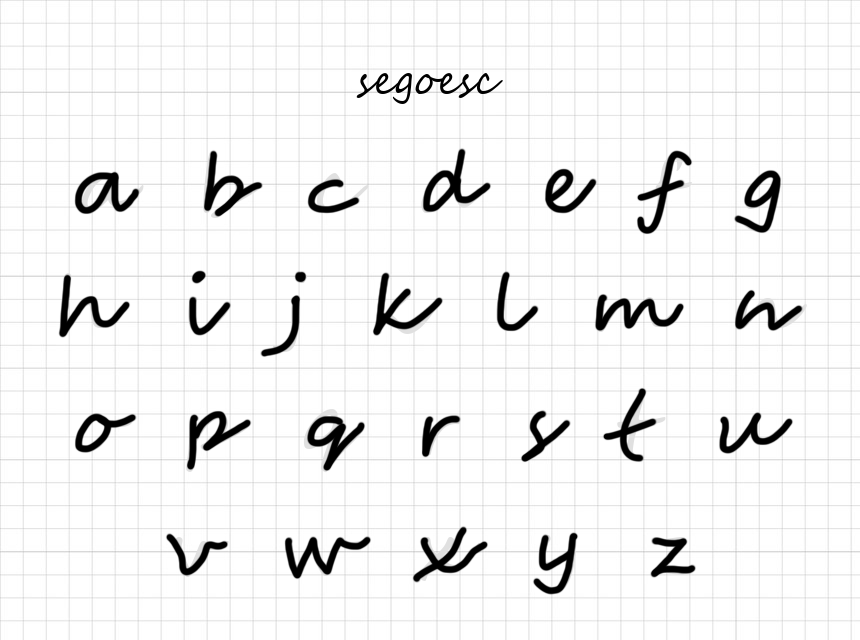 segoesc
a b c d e f g
h i j k l m n
o p q r s t u
v w x y z